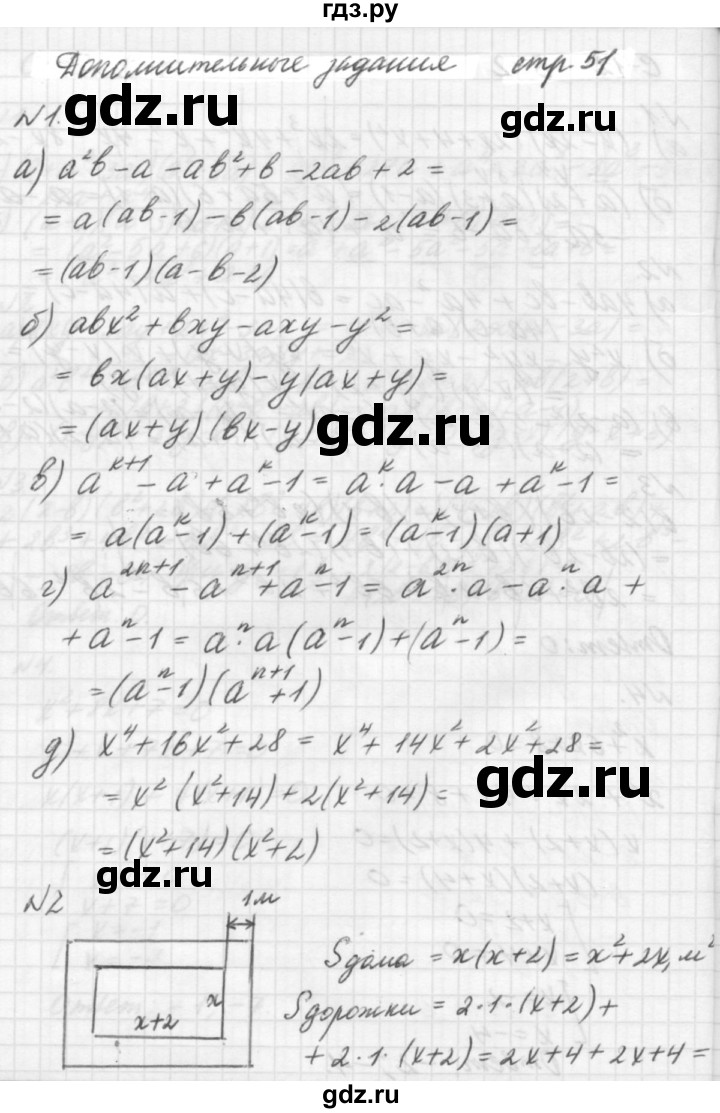 гдз.ру
Дополнительные задания стр. 51
gdz.ru
gdz.ru
№1.
а) a²b - a - ab² + b - 2ab + 2 =
gdz.ru
= a(ab-1) - b(ab-1) - 2(ab-1) =
= (ab-1)(a-b-2)
б) abx² + bxy - axy - y² =
= bx(ax+y) - y(ax+y) =
= (ax+y)(bx-y)
gdz.ru
в) a^{k+1} - a + a^k - 1 = a^k · a - a + a^k - 1 =
= a(a^k-1) + (a^k-1) = (a^k-1)(a+1)
г) a^{2n+1} - a^{n+1} + a^n - 1 = a^{2n} · a - a^n · a +
+ a^n - 1 = a^n · a(a^n-1) + (a^n-1) =
= (a^n-1)(a^{n+1}+1)
д) x⁴ + 16x² + 28 = x⁴ + 14x² + 2x² + 28 =
= x²(x²+14) + 2(x²+14) =
gdz.ru
= (x²+14)(x²+2)
gdz.ru
№2
1м
x
x+2
Sдома = x(x+2) = x²+2x, м²
Sдорожки = 2·1·(x+2) +
+ 2·1·(x+2) = 2x+4+2x+4 =
gdz.ru